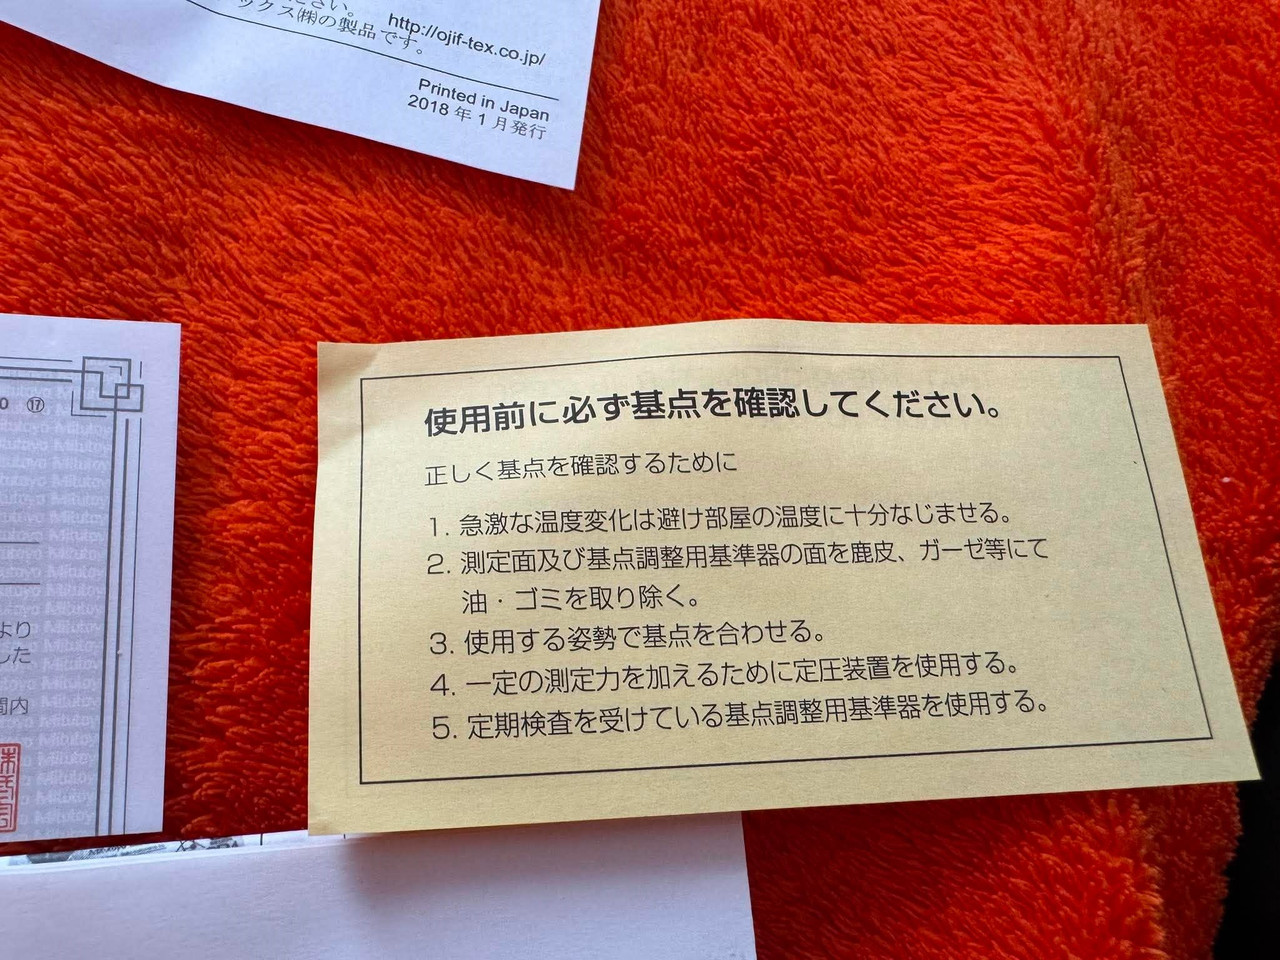 ださい。
ックス㈱の製品です。 http://ojif-tex.co.jp/
Printed in Japan
2018年1月発行
0 ⑰
Mitutoyo
より
した
間内
使用前に必ず基点を確認してください。
正しく基点を確認するために
1. 急激な温度変化は避け部屋の温度に十分なじませる。
2. 測定面及び基点調整用基準器の面を鹿皮、ガーゼ等にて
油・ゴミを取り除く。
3. 使用する姿勢で基点を合わせる。
4. 一定の測定力を加えるために定圧装置を使用する。
5. 定期検査を受けている基点調整用基準器を使用する。